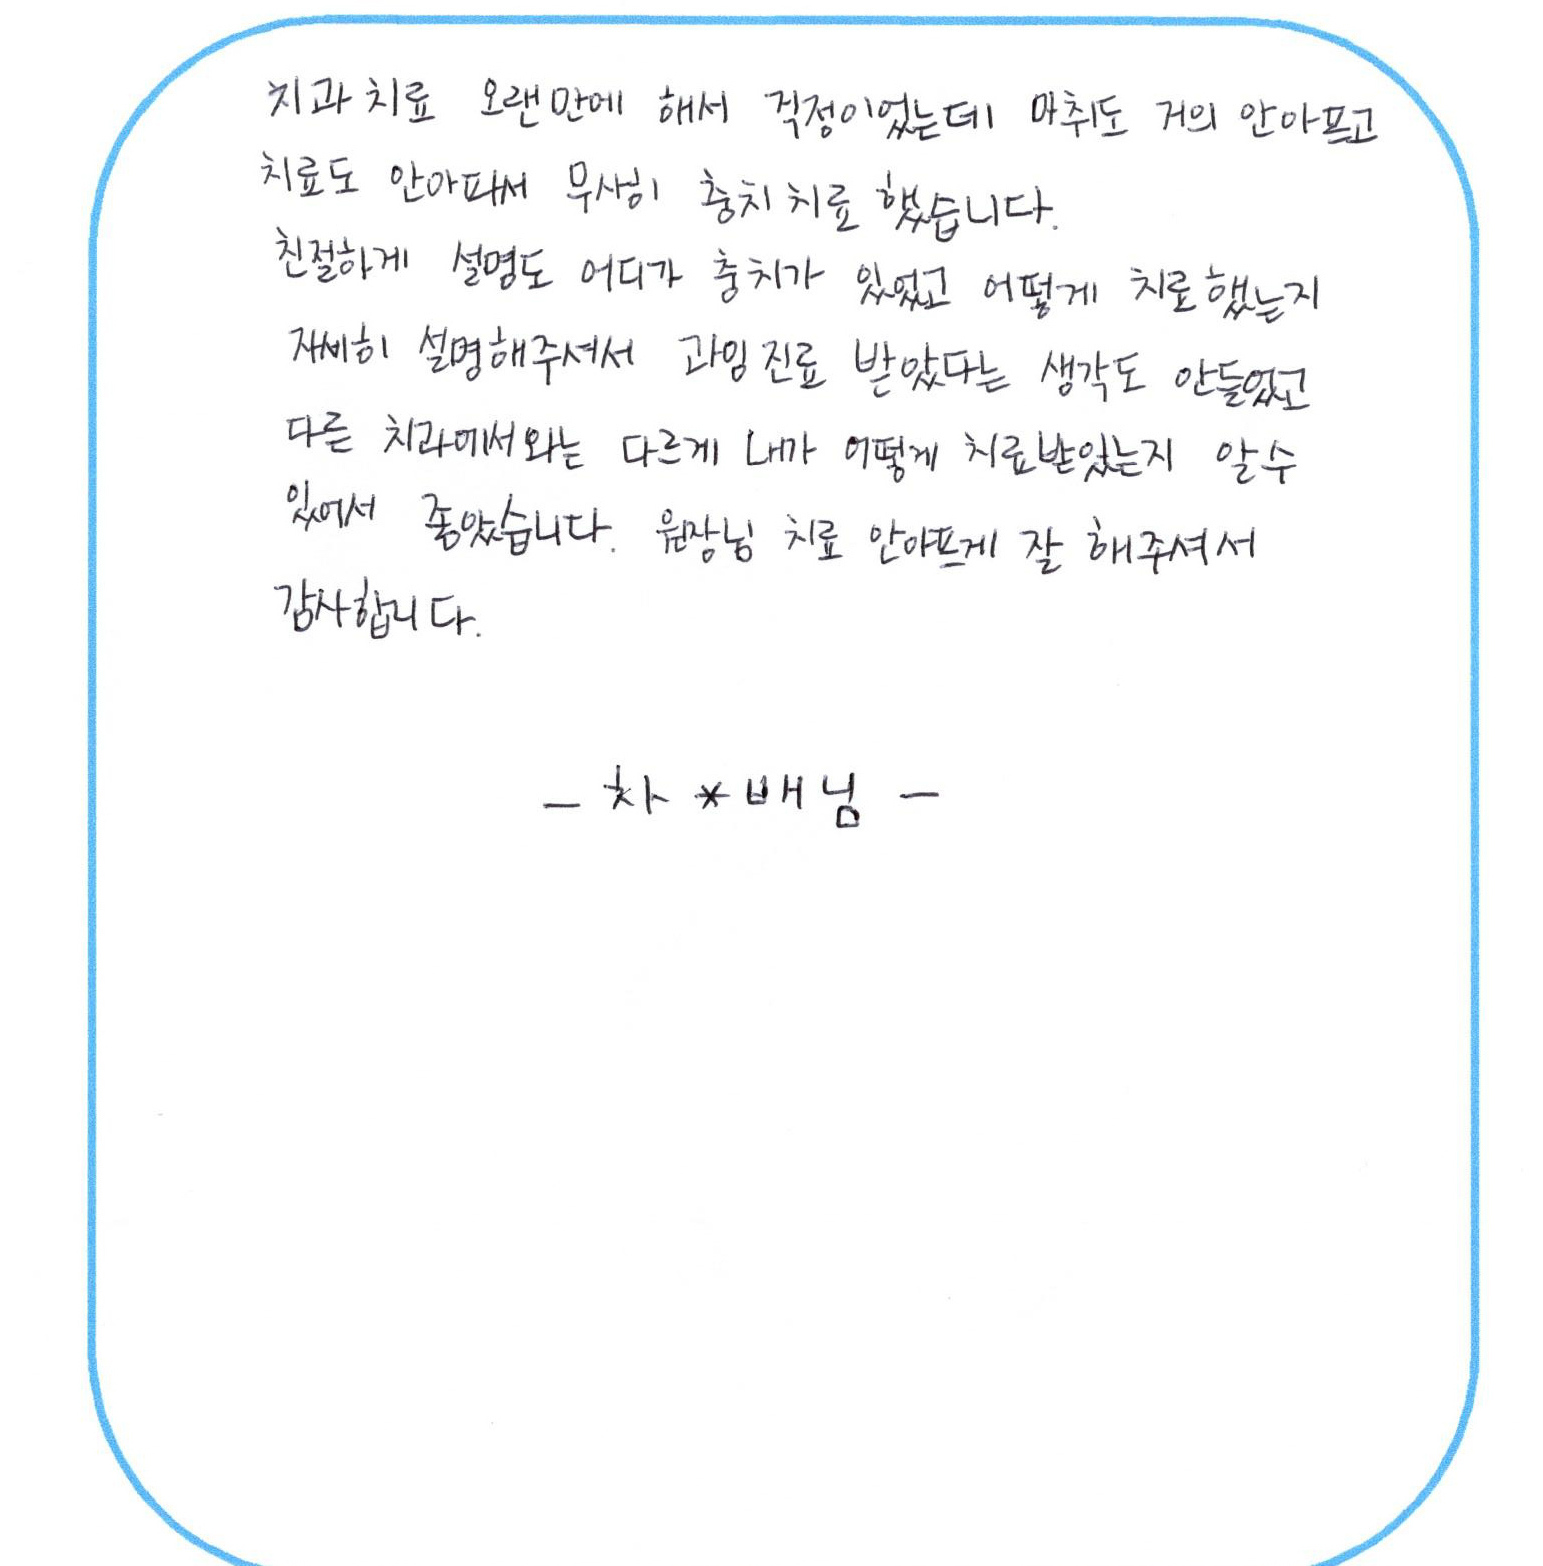 치과치료 오랜만에 해서 걱정이었는데 마취도 거의 안아프고
치료도 안아파서 무사히 충치치료 했습니다.
친절하게 설명도 어디가 충치가 있었고 어떻게 치료했는지
자세히 설명해주셔서 과잉진료 받았다는 생각도 안들었고
다른 치과에서와는 다르게 내가 어떻게 치료받았는지 알수
있어서 좋았습니다. 원장님 치료 안아프게 잘 해주셔서
감사합니다.
- 차*배님 -